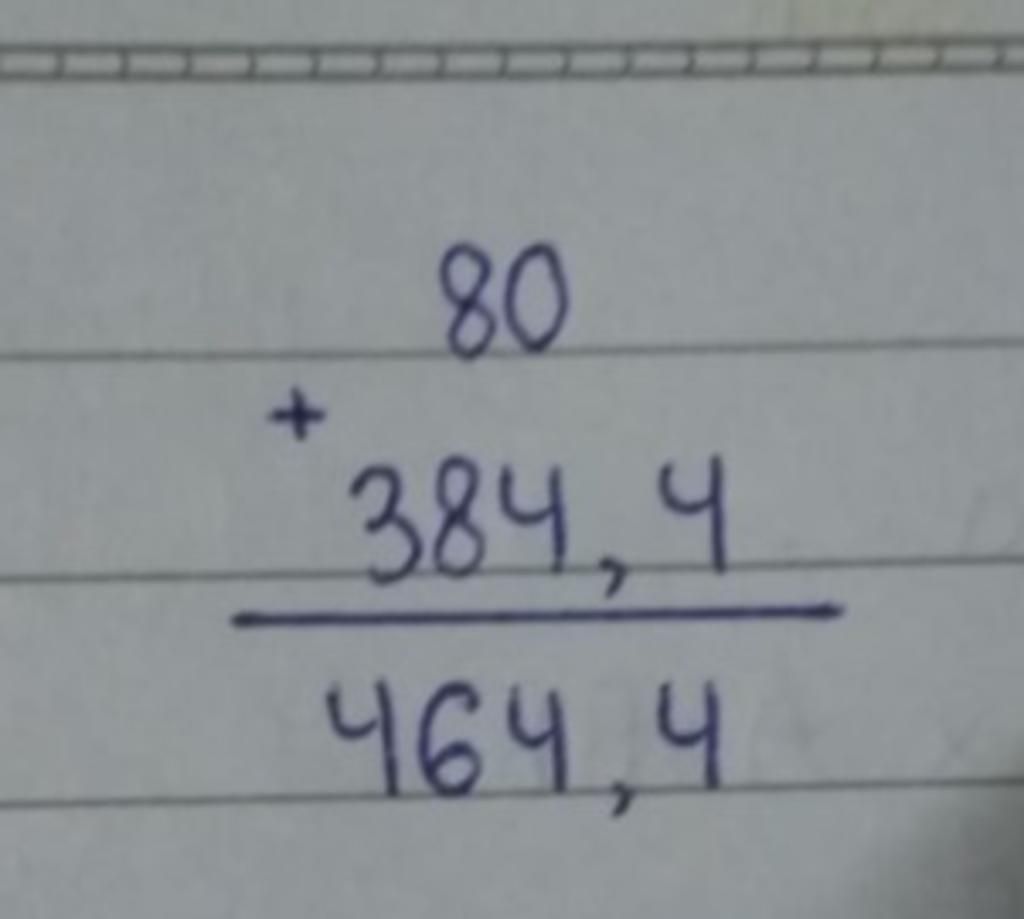 80
+
384,4
464,4